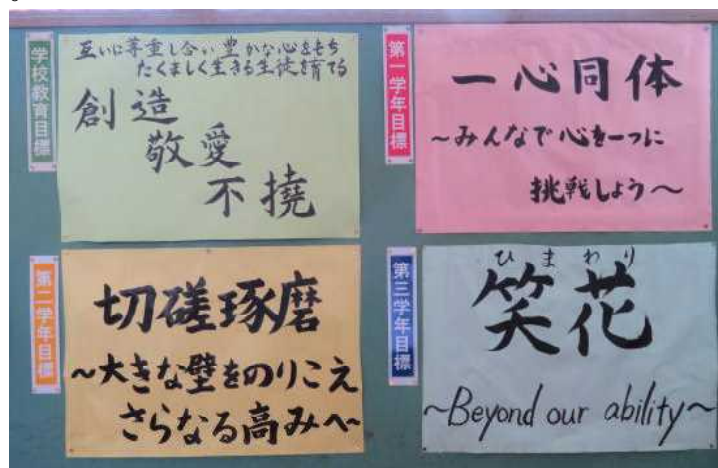 学校教育目標
互いに尊重し合い豊かな心をもち
たくましく生きる生徒を育てる
創造
敬愛
不撓
第一学年目標
一心同体
~みんなで心を一つに
挑戦しよう~
第二学年目標
切磋琢磨
~大きな壁をのりこえ
さらなる高みへ~
第三学年目標
ひまわり
笑花
~Beyond our ability~